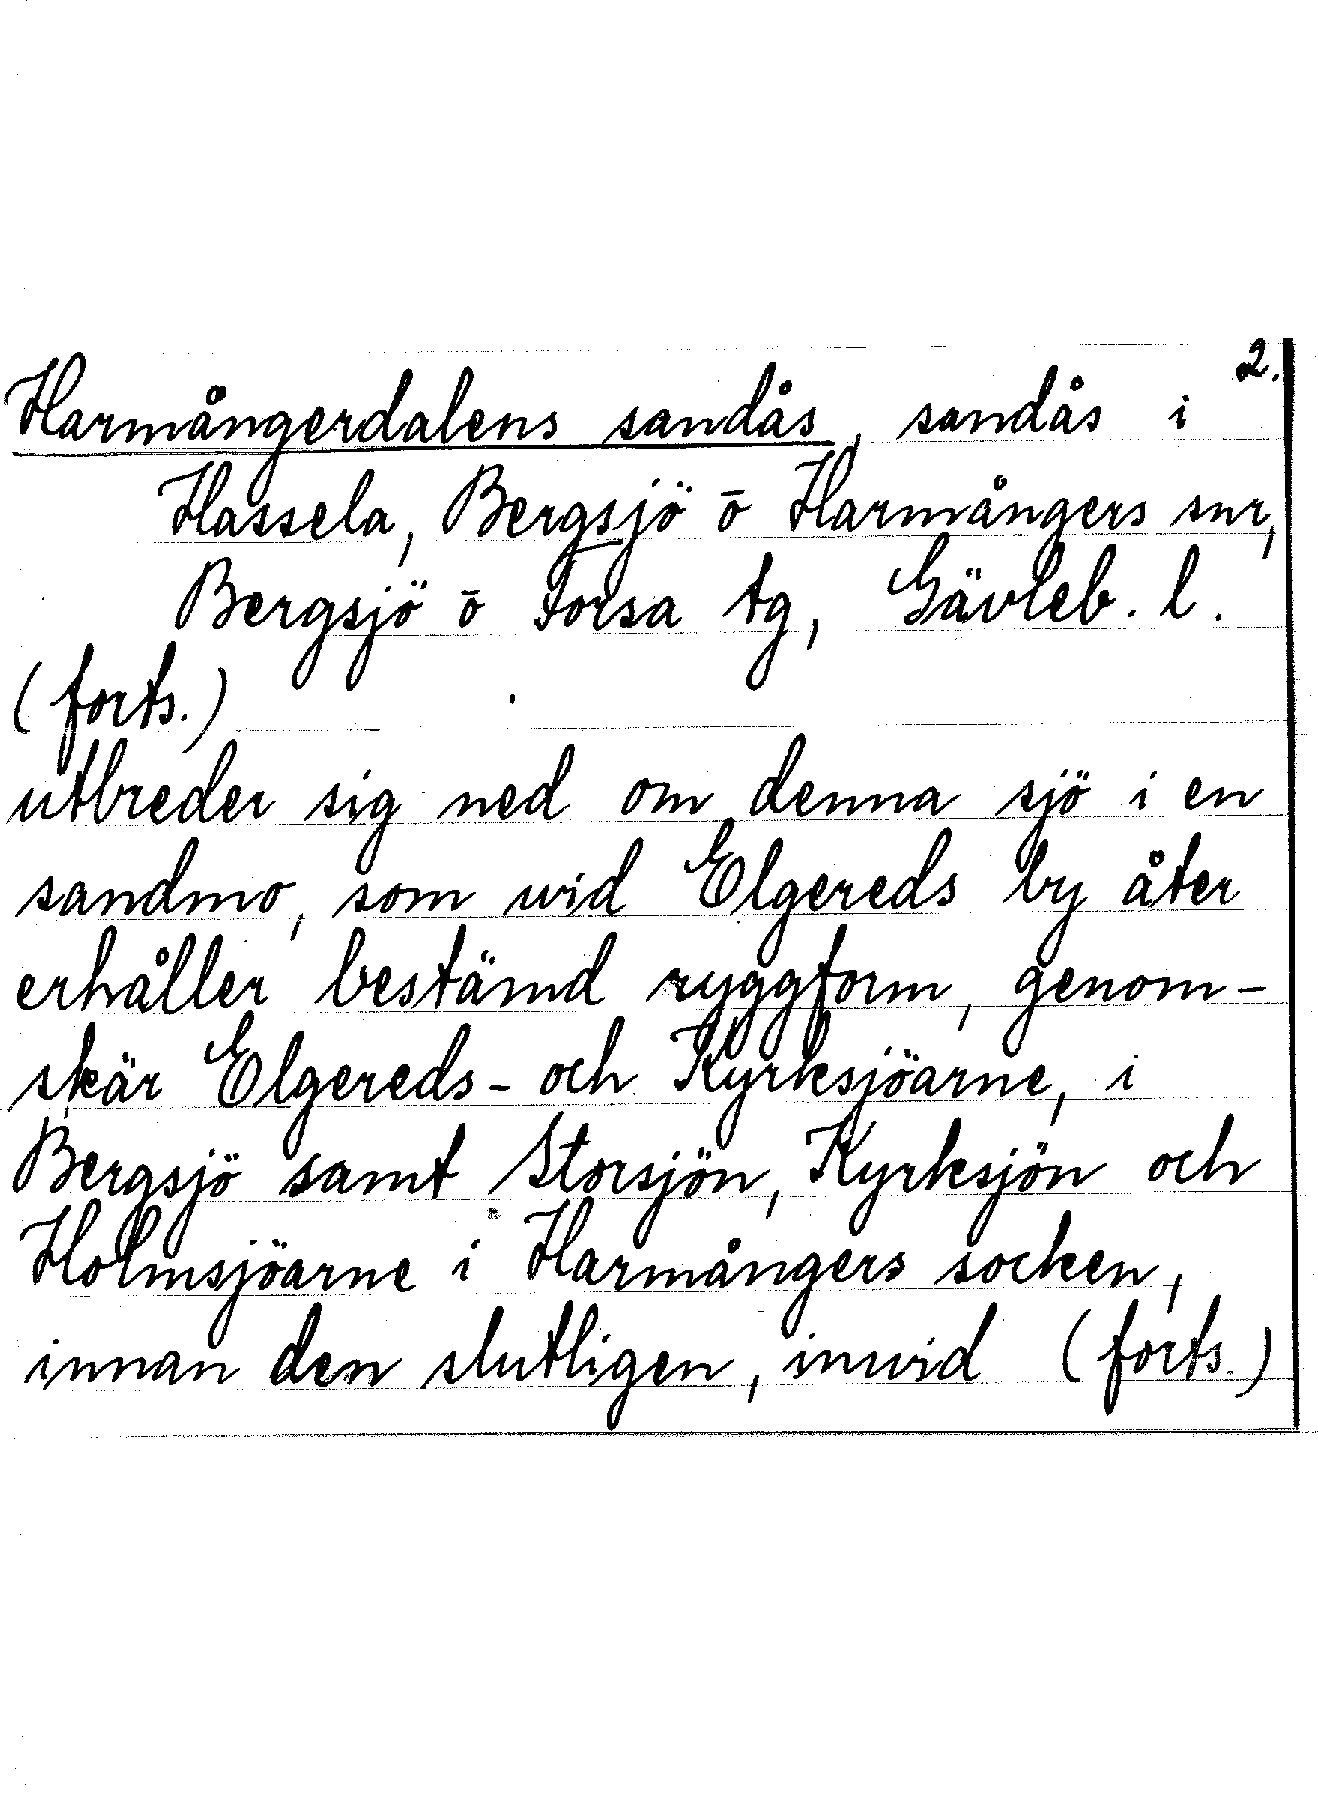 2.
Harmångerdalens sandås, sandås i
Hassela, Bergsjö ō Harmångers snr,
Bergsjö ō Forsa tg, Gävleb. l.
(forts.)
utbreder sig ned om denna sjö i en
sandmo, som wid Elgereds by åter
erhåller bestämd ryggform, genom-
skär Elgereds- och Kyrksjöarne, i
Bergsjö samt Storsjön, Kyrksjön och
Holmsjöarne i Harmångers socken,
innan den slutligen, inwid (forts.)